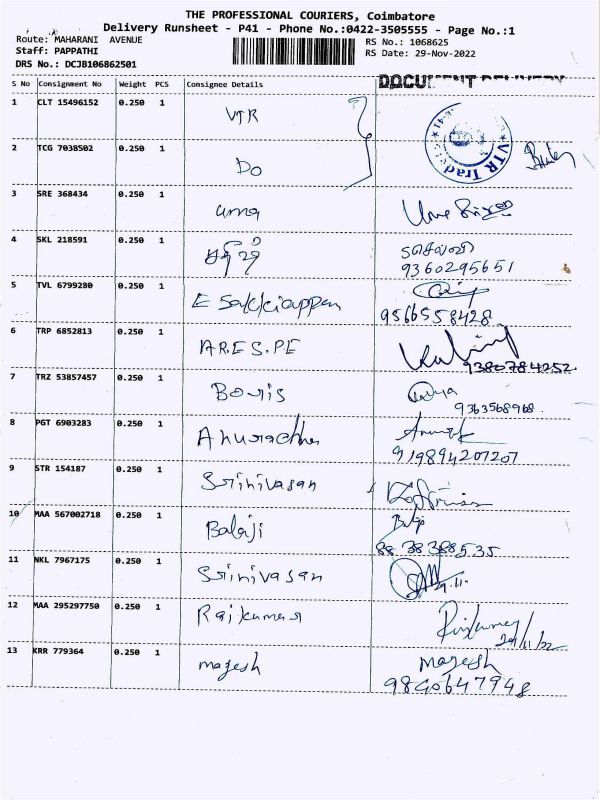 THE PROFESSIONAL COURIERS, Coimbatore
Delivery Runsheet - P41 - Phone No.:0422-3505555 - Page No.:1
Route: MAHARANI AVENUE
RS No.: 1068625
Staff: PAPPATHI
RS Date: 29-Nov-2022
DRS No.: DCJB106862501
DOCUMENT DELIVERY
S No Consignment No Weight PCS Consignee Details
1 CLT 15496152 0.250 1 VTR
VTR Trad
2 TCG 7038502 0.250 1 Do
3 SRE 368434 0.250 1 uma
4 SKL 218591 0.250 1
9360295651
5 TVL 6799280 0.250 1 E Sakkiappan
9566558428
6 TRP 6852813 0.250 1 AR.ES.PE
9380784252
7 TRZ 53857457 0.250 1 Bouis
9363568968
8 PGT 6903283 0.250 1 Anuradha
919894207207
9 STR 154187 0.250 1 Srinivasan
10 MAA 567002718 0.250 1 Balaji
88 38 388535
11 NKL 7967175 0.250 1 Srinivasan
12 MAA 295297750 0.250 1 Rajkumar
29/11/22
13 KRR 779364 0.250 1 magesh Magesh
9840647948